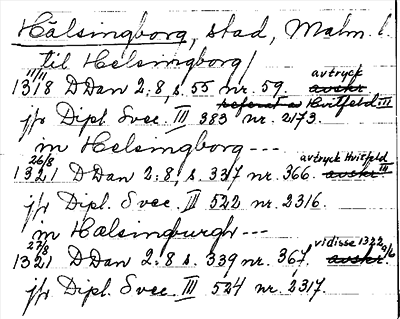 Hälsingborg, stad, Malm. l.
til Helsingborg/
11/11 avtryck
1318 DDan 2:8, s. 55 nr. 59. avskr.
referat a Hvitfeld III
jfr Dipl. Svec. III 383 nr. 2173.
in Helsingborg ---
26/8 avtryck Hvitfeld III
1321 DDan 2:8, s. 337 nr. 366. avskr.
jfr Dipl. Svec. III 522 nr. 2316.
in Hælsingburgh ---
27/8 vidisse 1322 9/6
1321 DDan 2:8 s. 339 nr. 367. avskr.
jfr Dipl. Svec. III 524 nr. 2317.